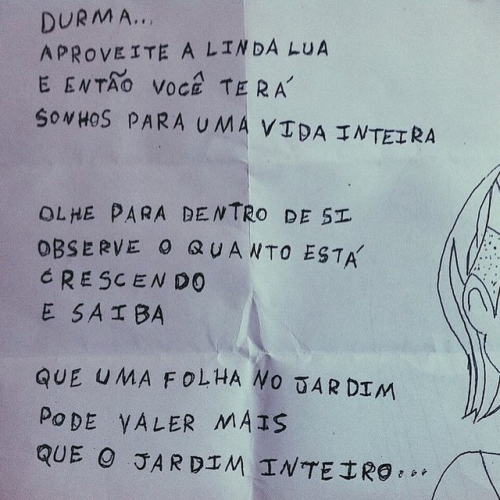 DURMA...
APROVEITE A LINDA LUA
E ENTÃO VOCÊ TERÁ
SONHOS PARA UMA VIDA INTEIRA
OLHE PARA DENTRO DE SI
OBSERVE O QUANTO ESTÁ
CRESCENDO
E SAIBA
QUE UMA FOLHA NO JARDIM
PODE VALER MAIS
QUE O JARDIM INTEIRO...